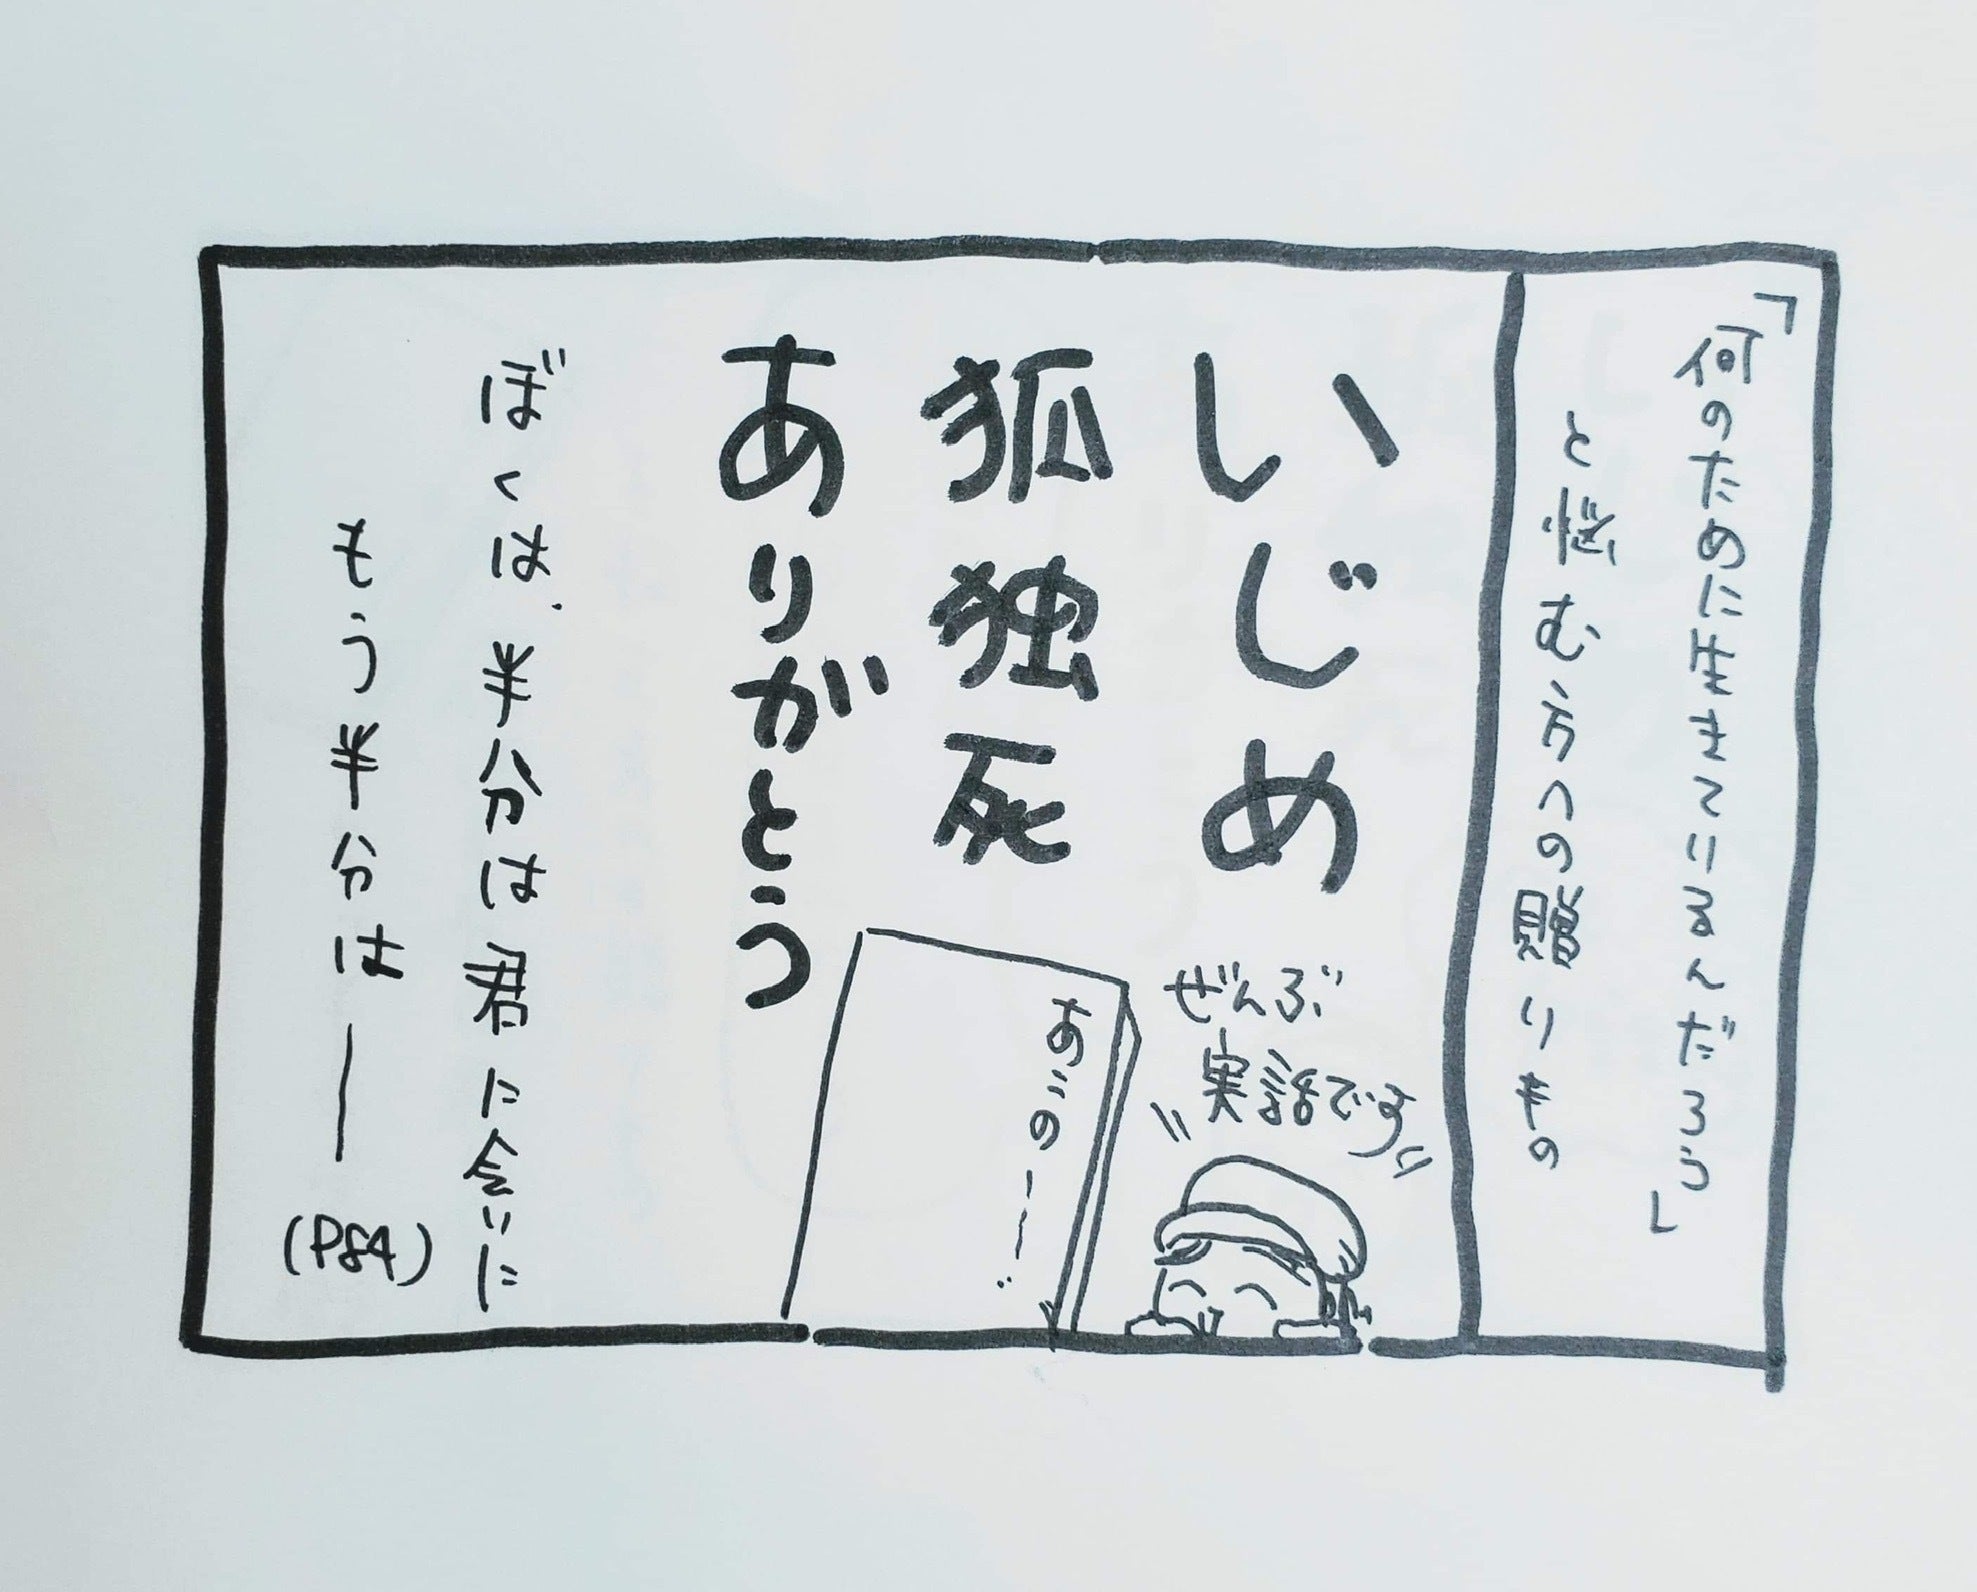 「何のために生きているんだろう」
と悲む方への贈りもの
いじめ
狐独死
ありがとう
ぜんぶ
実話です
ぼくは、半分は君に会いに
もう半分は――(P84)